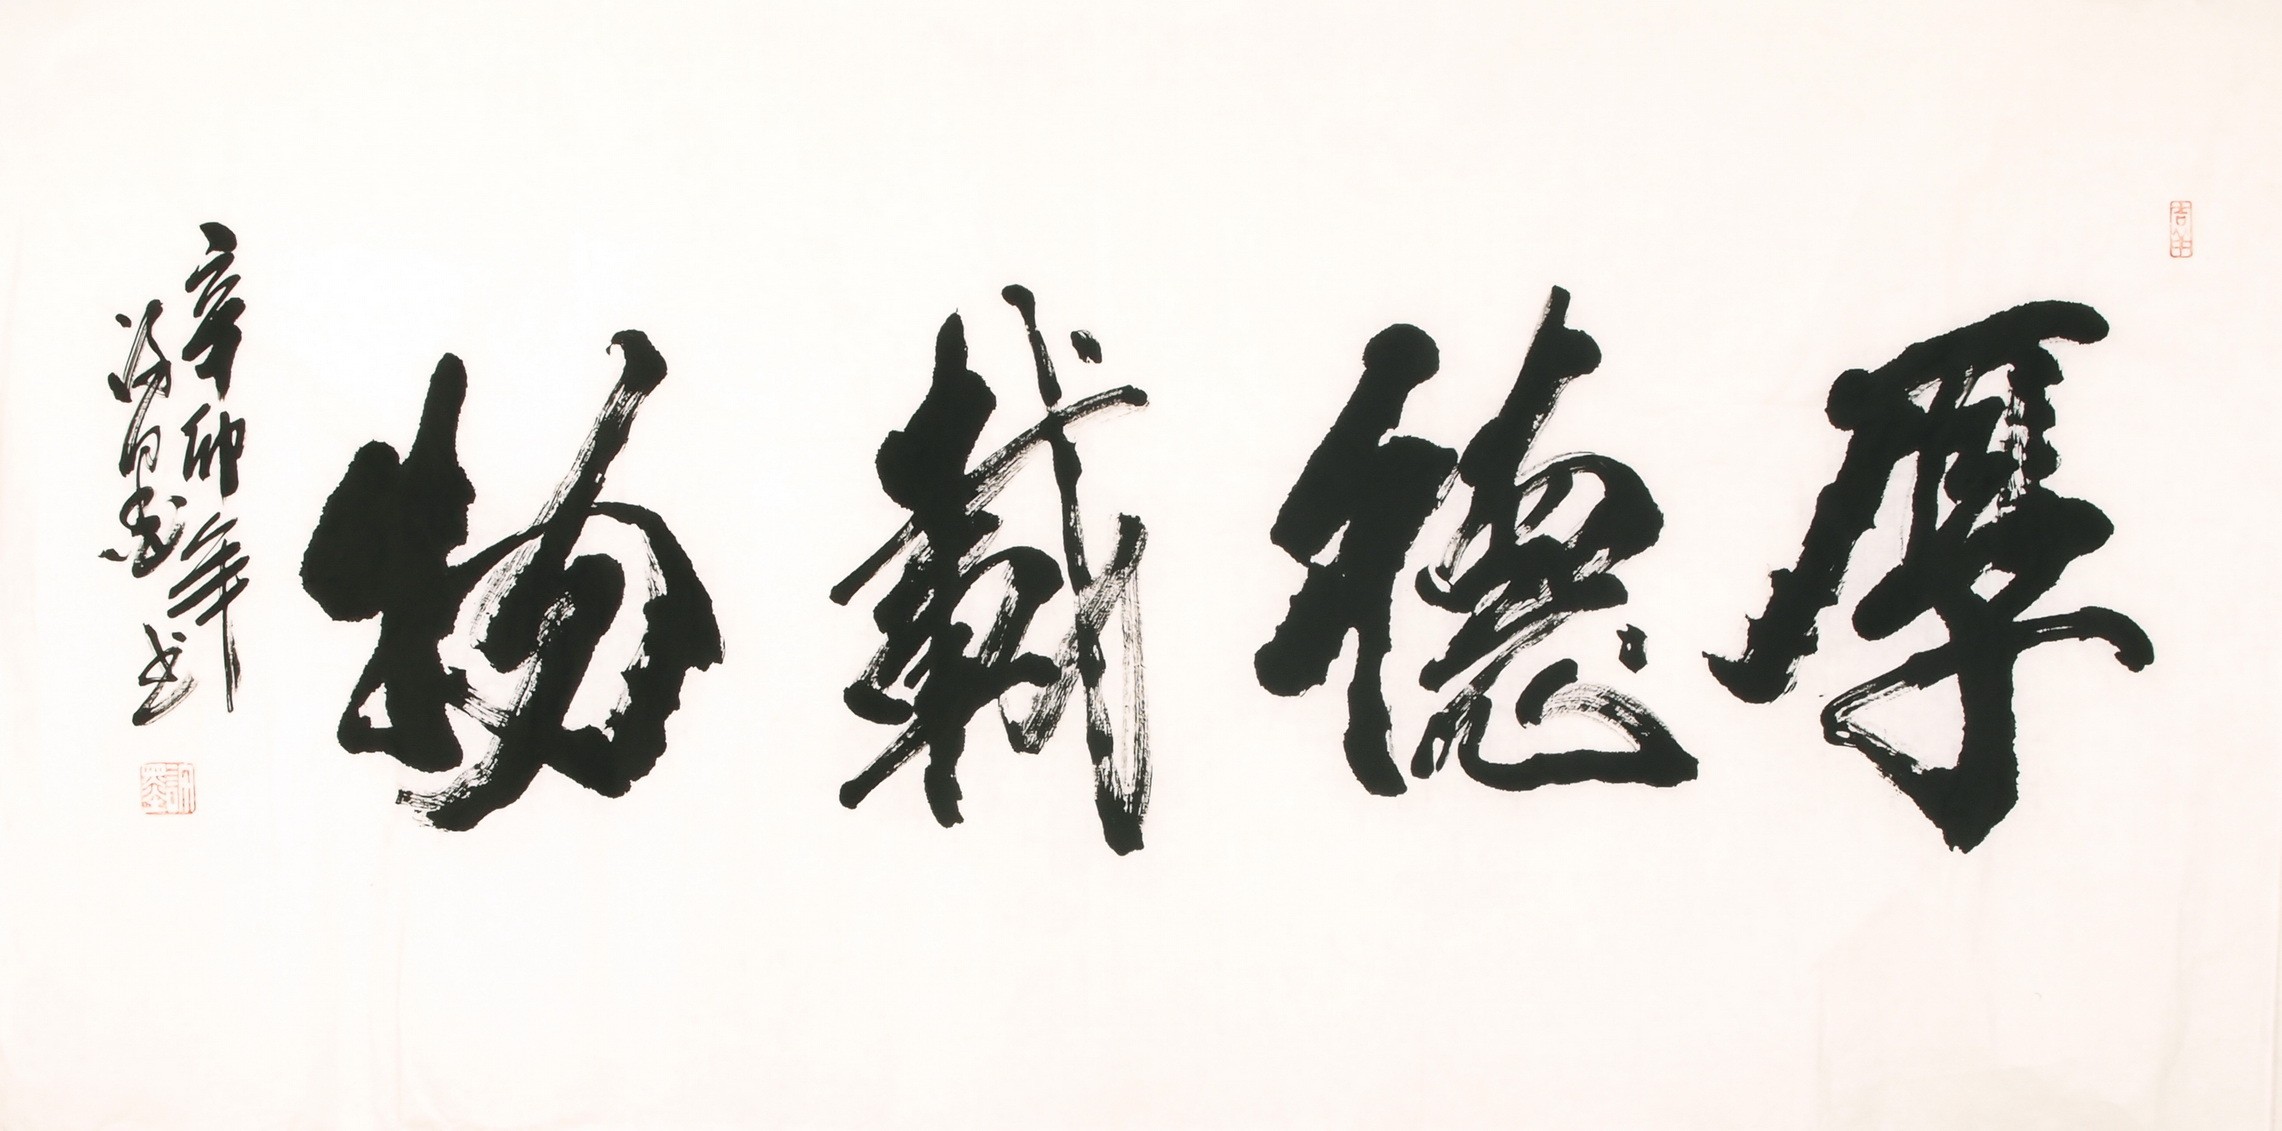 厚德載物
辛卯年
书